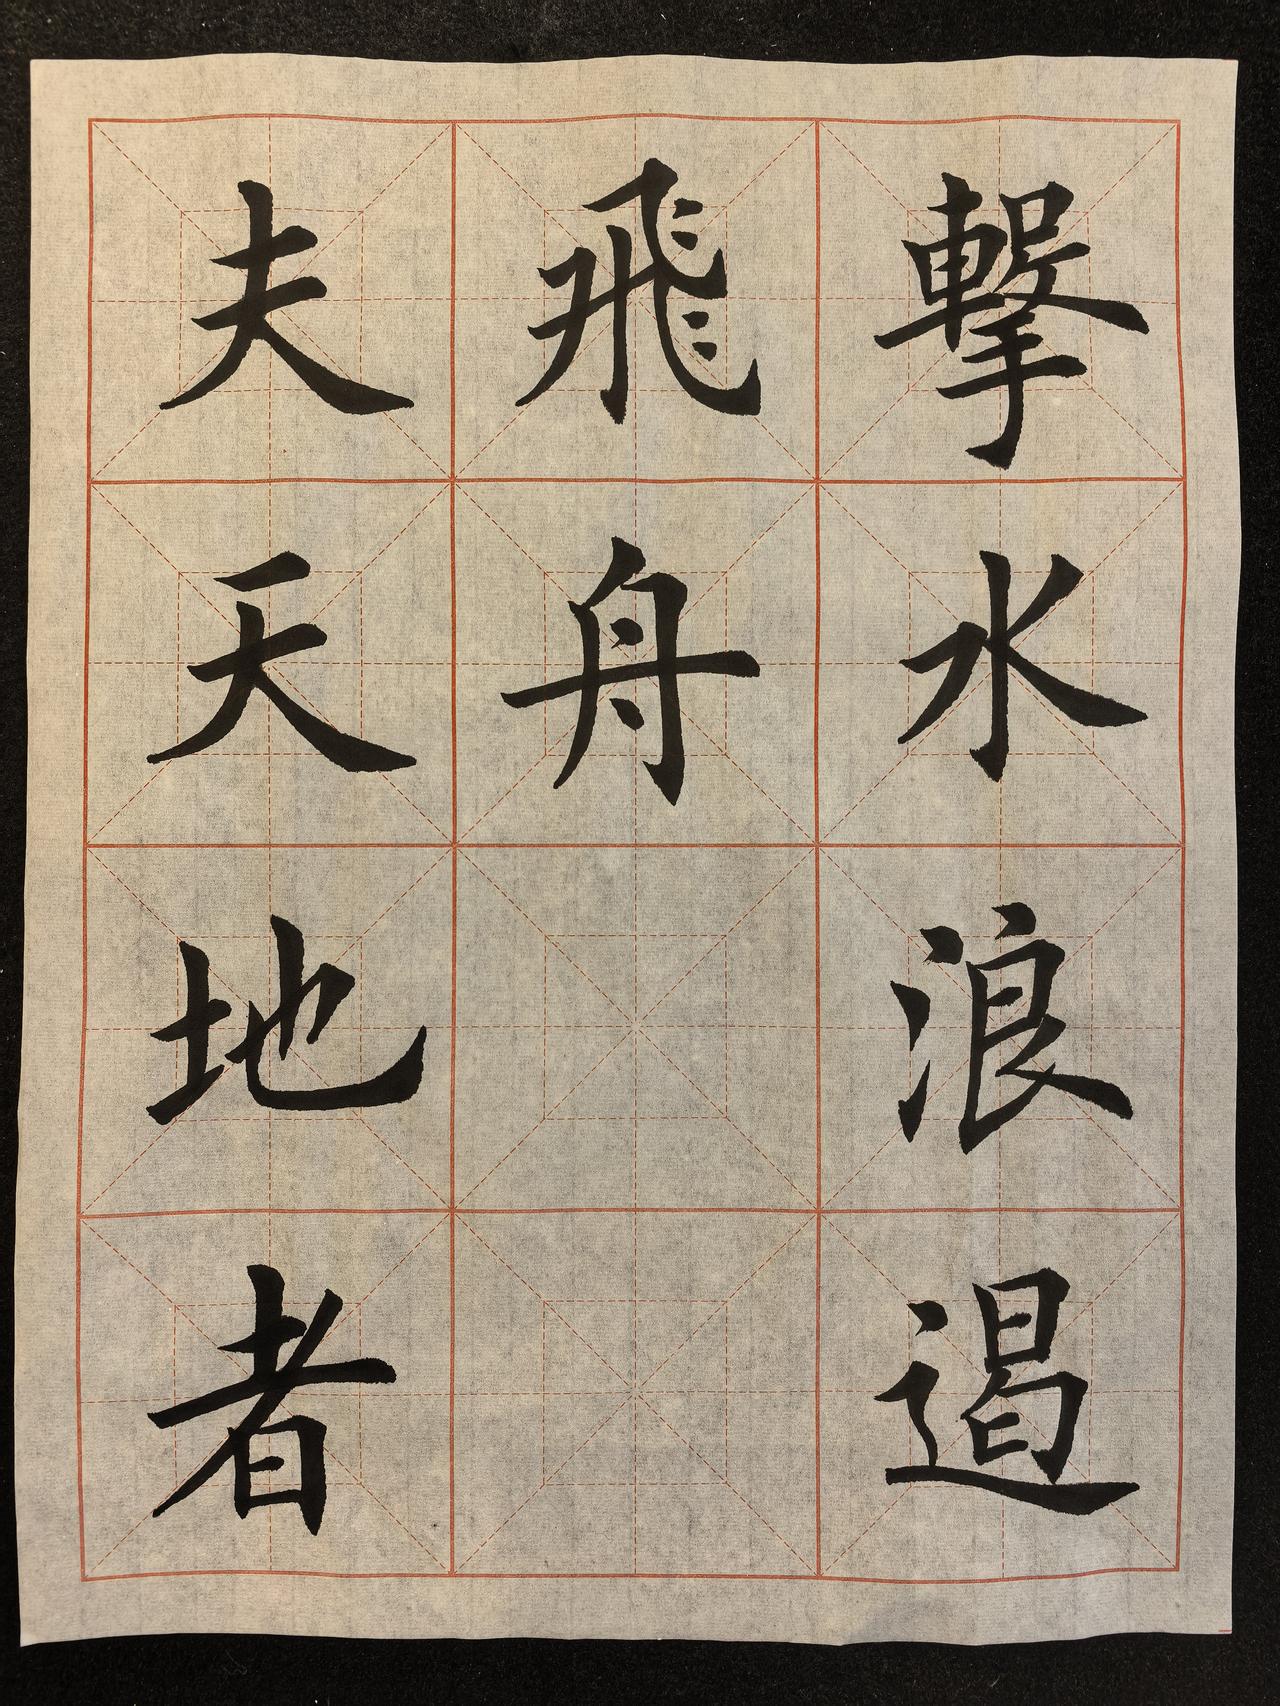 擊水浪遏
飛舟
夫天地者